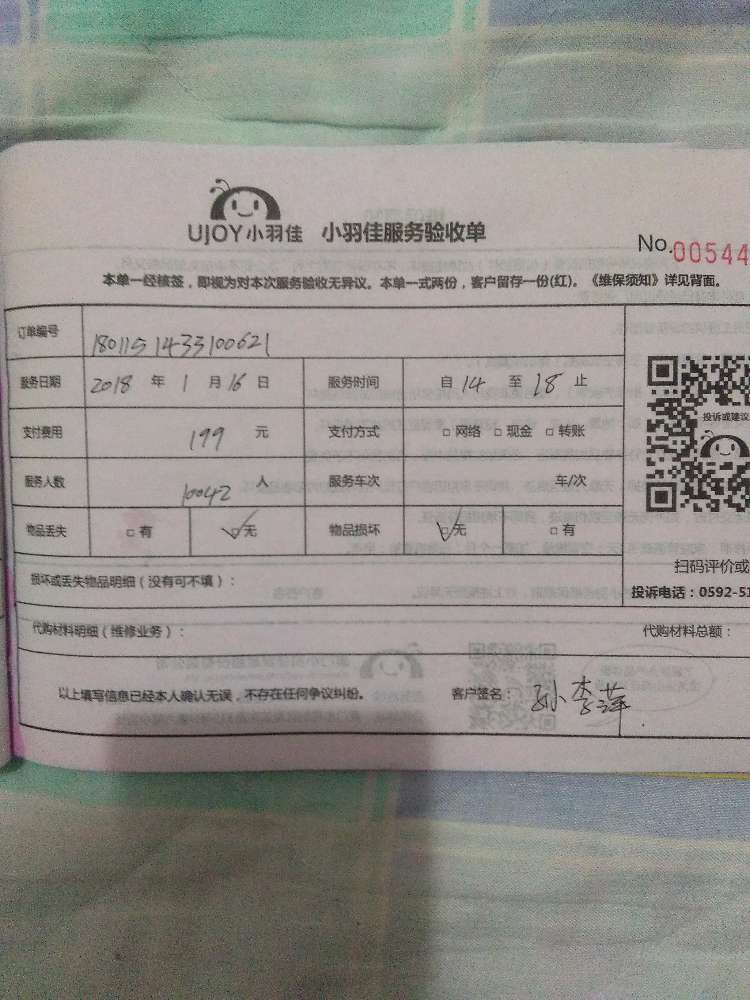 UJOY小羽佳 小羽佳服务验收单
No.00544
本单一经核签，即视为对本次服务验收无异议。本单一式两份，客户留存一份(红)。《维保须知》详见背面。
订单编号 1801151433100621
服务日期 2018 年 1 月 16 日 服务时间 自 14 至 18 止
投诉或建议
支付费用 199 元 支付方式 □网络 □现金 □转账
服务人数 10042 人 服务车次 车/次
物品丢失 □有 □无 物品损坏 □无 □有
扫码评价或
损坏或丢失物品明细（没有可不填）：
投诉电话：0592-51
代购材料明细（维修业务）： 代购材料总额：
以上填写信息已经本人确认无误，不存在任何争议纠纷。 客户签名： 孙李萍